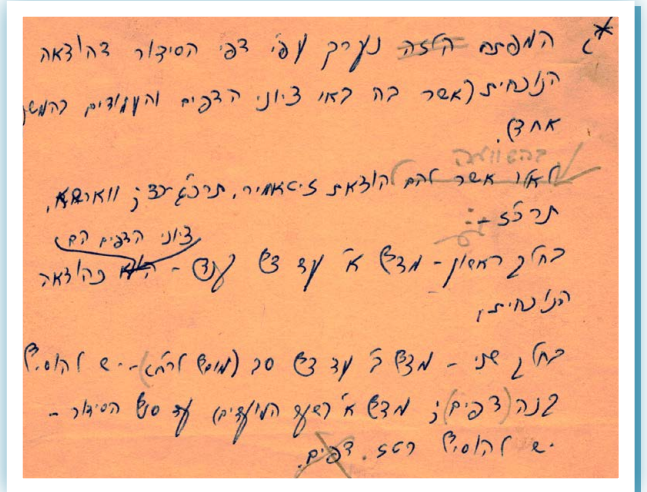 *) המפתח הלזה נערך עפ"י דפי הסידור דהוצאה
הנוכחית (אשר בה באו ציוני הדפים והעמודים בהמשך
אחד).
בהשוואה
לאלו אשר להם הוצאת זיטאמיר, תרכ"ג ווארשא,
תרכ"ז -:
ציוני הדפים הם:
בחלק ראשון - מדף א' עד דף קנד - הוא כהוצאה
הנוכחית;
בחלק שני - מדף ב' עד דף סב - יש להוסיף
קנה (דפים); מדף א' (שער המועדים) עד סוף הסידור -
יש להוסיף רטז. דפים.